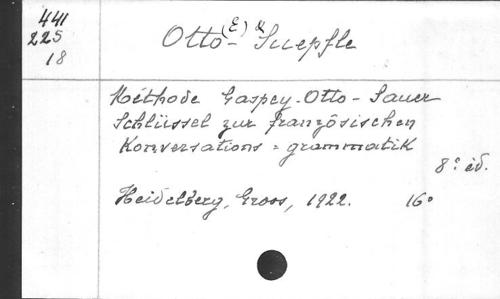 441
225
18
Otto (E) & Suepfle
Méthode Gaspey-Otto-Sauer
Schlüssel zur französischen
Konversations=grammatik
8° éd.
Heidelberg, Groos, 1922. 16°